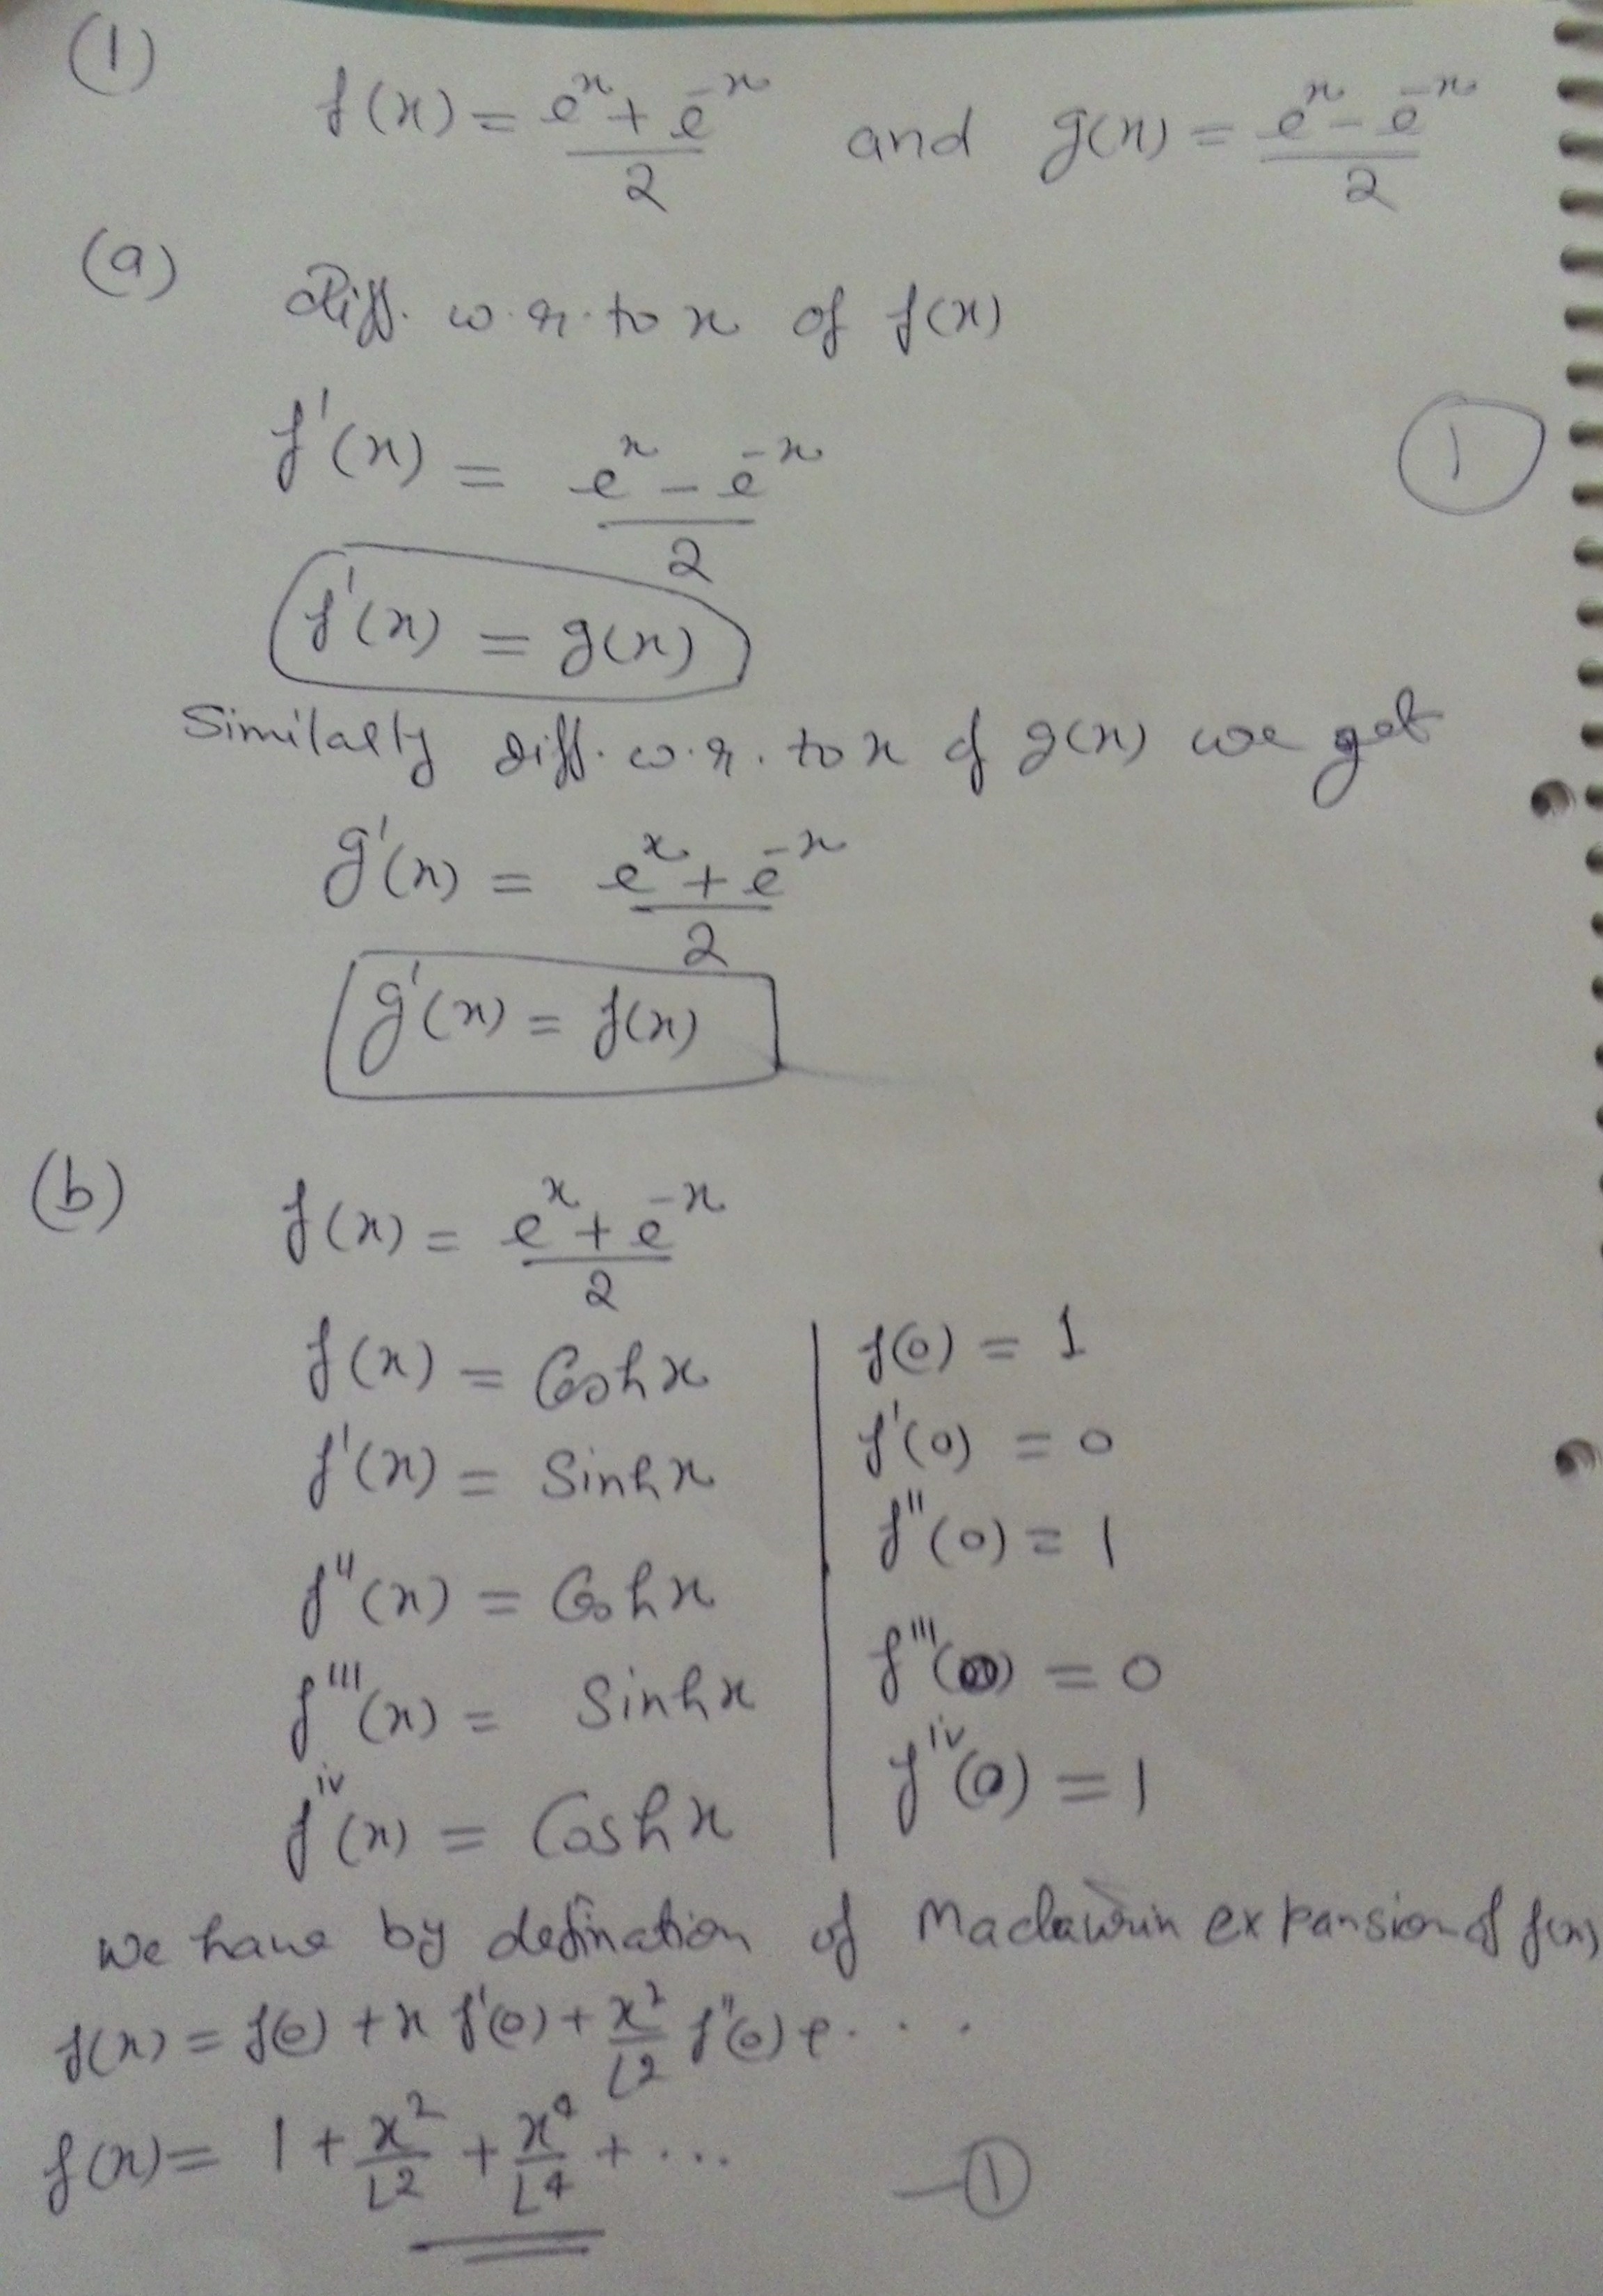 (1)
f(x) = (e^x + e^-x)/2 and g(x) = (e^x - e^-x)/2
(a)
Diff. w.r. to x of f(x)
f'(x) = (e^x - e^-x)/2
(1)
f'(x) = g(x)
Similarly diff. w.r. to x of g(x) we get
g'(x) = (e^x + e^-x)/2
g'(x) = f(x)
(b)
f(x) = (e^x + e^-x)/2
f(x) = Coshx | f(0) = 1
f'(x) = Sinhx | f'(0) = 0
f''(x) = Coshx | f''(0) = 1
f'''(x) = Sinhx | f'''(0) = 0
f^iv(x) = Coshx | f^iv(0) = 1
we have by defination of Maclawrin expansion of f(x)
f(x) = f(0) + x f'(0) + x^2/∟2 f''(0) + ....
f(x) = 1 + x^2/∟2 + x^4/∟4 + ... —(1)